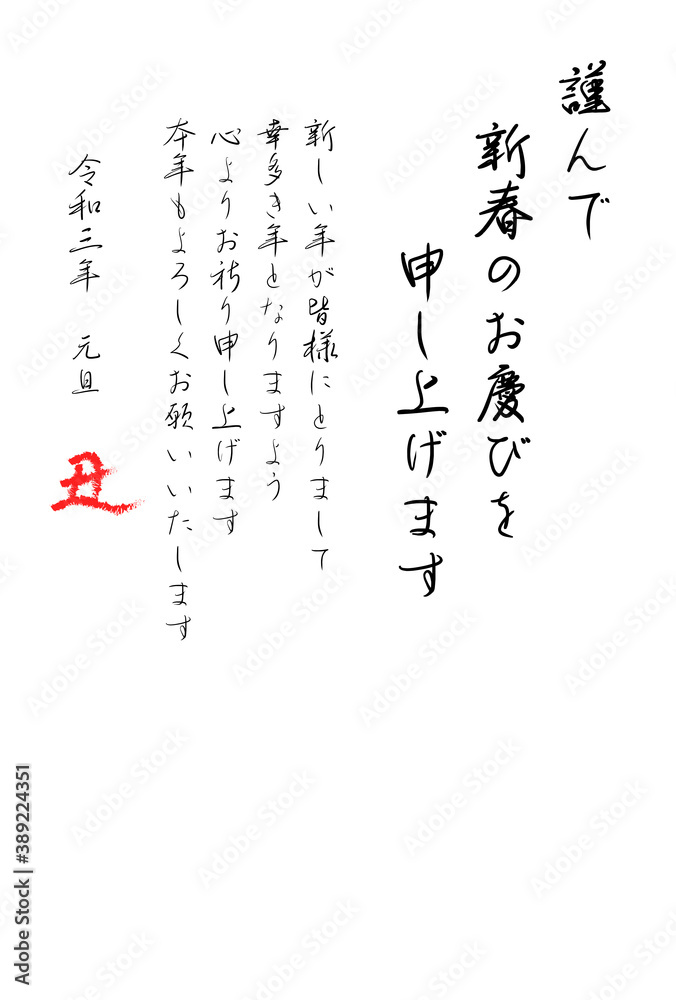 謹んで
新春のお慶びを
申し上げます
新しい年が皆様にとりまして
幸多き年となりますよう
心よりお祈り申し上げます
本年もよろしくお願いいたします
令和三年 元旦
丑
Adobe Stock | #389224351
Adobe Stock